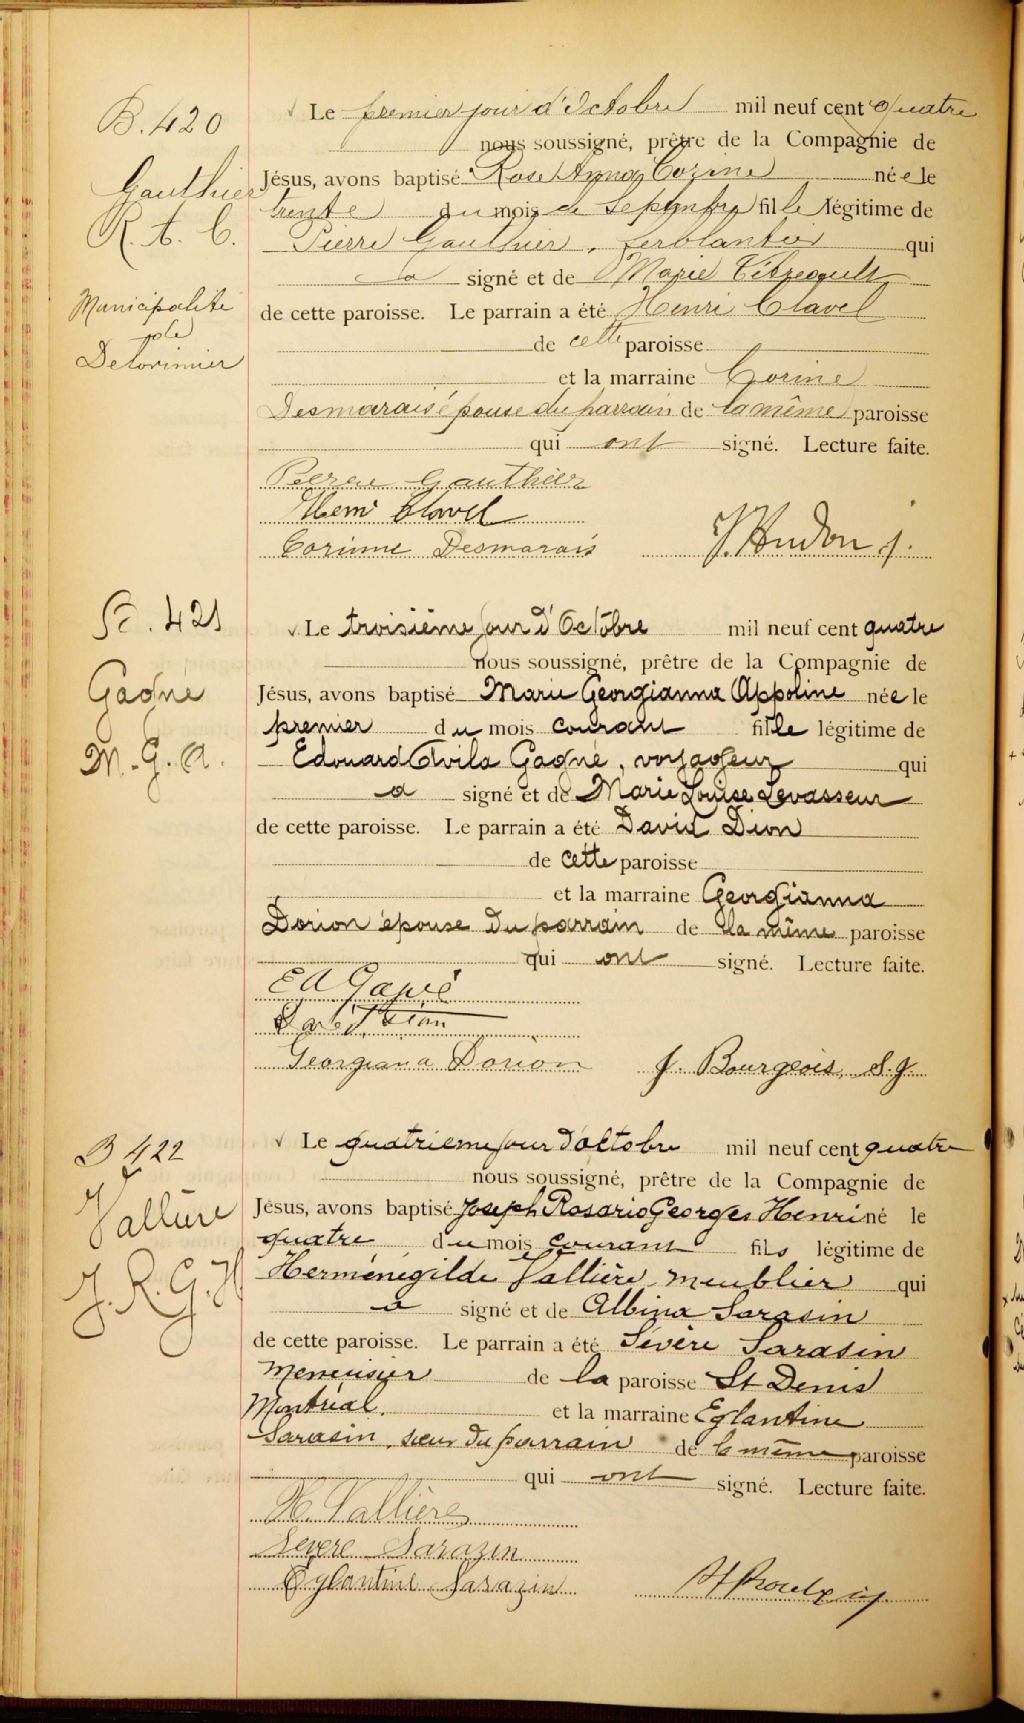 B. 420
Gauthier
R. A. C.
Municipalité
de
Delorimier
√ Le premier jour d'Octobre mil neuf cent quatre
nous soussigné, prêtre de la Compagnie de
Jésus, avons baptisé Rose Anna Corine née le
trente du mois de Septembre fille légitime de
Pierre Gauthier, ferblantier qui
a signé et de Marie Tétreault
de cette paroisse. Le parrain a été Henri Clavel
de cette paroisse
et la marraine Corine
Desmarais épouse du parrain de la même paroisse
qui ont signé. Lecture faite.
Pierre Gauthier
Henri Clavel
Corinne Desmarais J. Hudon j.
B. 421
Gagné
M. G. A.
√ Le troisième jour d'Octobre mil neuf cent quatre
nous soussigné, prêtre de la Compagnie de
Jésus, avons baptisé Marie Georgianna Appoline née le
premier du mois courant fille légitime de
Edouard Avila Gagné, voyageur qui
a signé et de Marie Louise Levasseur
de cette paroisse. Le parrain a été David Dion
de cette paroisse
et la marraine Georgianna
Dorion épouse du parrain de la même paroisse
qui ont signé. Lecture faite.
E A Gagné
David Dion
Georgiana Dorion J. Bourgeois, S. J.
B 422
Vallière
J. R. G. H
√ Le quatrieme jour d'octobre mil neuf cent quatre
nous soussigné, prêtre de la Compagnie de
Jésus, avons baptisé Joseph Rosario Georges Henri né le
quatre du mois courant fils légitime de
Herménégilde Vallière, meublier qui
a signé et de Albina Sarasin
de cette paroisse. Le parrain a été Sévère Sarasin
menuisier de la paroisse St Denis
Montréal. et la marraine Eglantine
Sarasin, sœur du parrain de la même paroisse
qui ont signé. Lecture faite.
H. Vallière
Severe Sarazin
Eglantine Sarazin